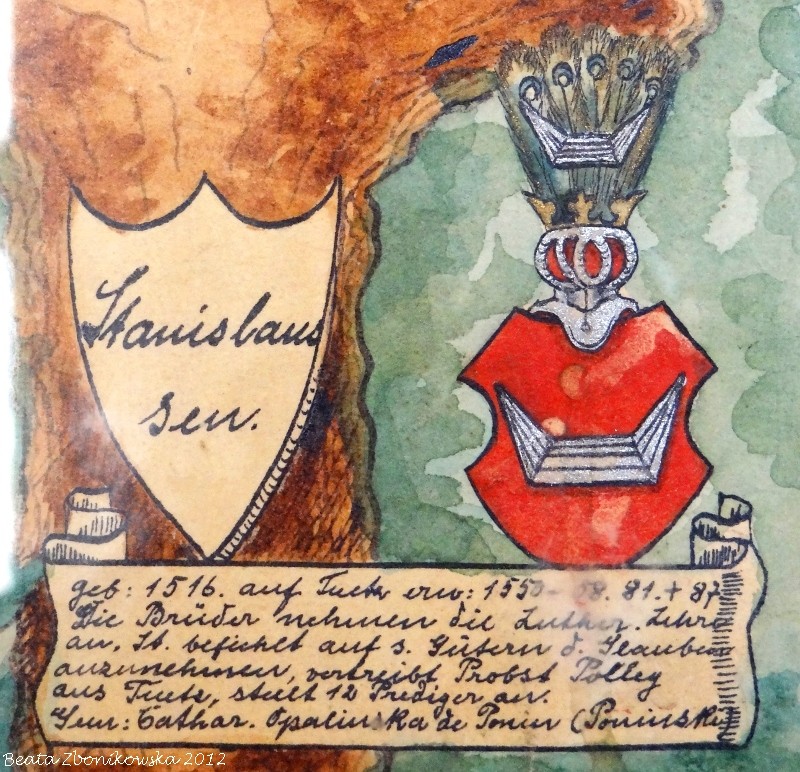 Stanislaus
sen.
geb: 1516. auf Tuetz erw: 1550 - 58. 81. + 87
Die Brüder nehmen die Luther. Lehre
an. St. befiehlt auf s. Gütern d. Glauben
anzunehmen, vertreibt Probst Polley
aus Tuetz, stellt 12 Prediger an.
Gem: Cathar. Opalinska de Ponin (Poninski
Beata Zbonikowska 2012